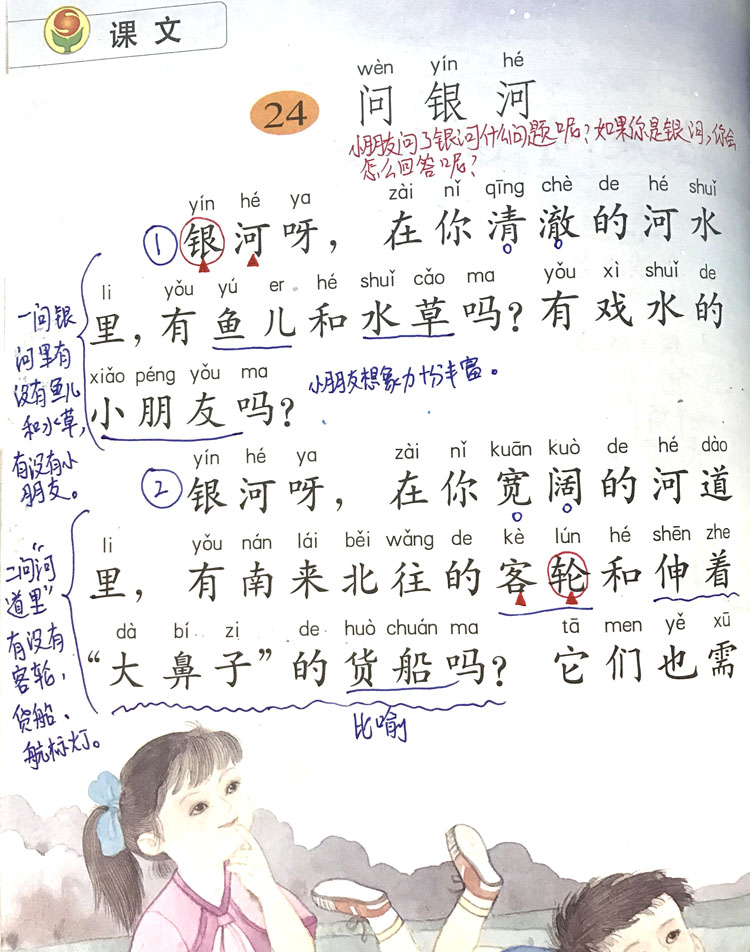 课文
wèn yín hé
24 问银河
小朋友问了银河什么问题呢?如果你是银河,你会
怎么回答呢?
yín hé ya zài nǐ qīng chè de hé shuǐ
① 银河呀,在你清澈的河水
li yǒu yú er hé shuǐ cǎo ma yǒu xì shuǐ de
里,有鱼儿和水草吗?有戏水的
xiǎo péng yǒu ma
小朋友吗?
小朋友想象力十分丰富。
一问银
河里有
没有鱼儿
和水草,
有没有小
朋友。
yín hé ya zài nǐ kuān kuò de hé dào
② 银河呀,在你宽阔的河道
li yǒu nán lái běi wǎng de kè lún hé shēn zhe
里,有南来北往的客轮和伸着
dà bí zi de huò chuán ma tā men yě xū
“大鼻子”的货船吗?它们也需
比喻
二问“河
道里”
有没有
客轮,
货船、
航标灯。